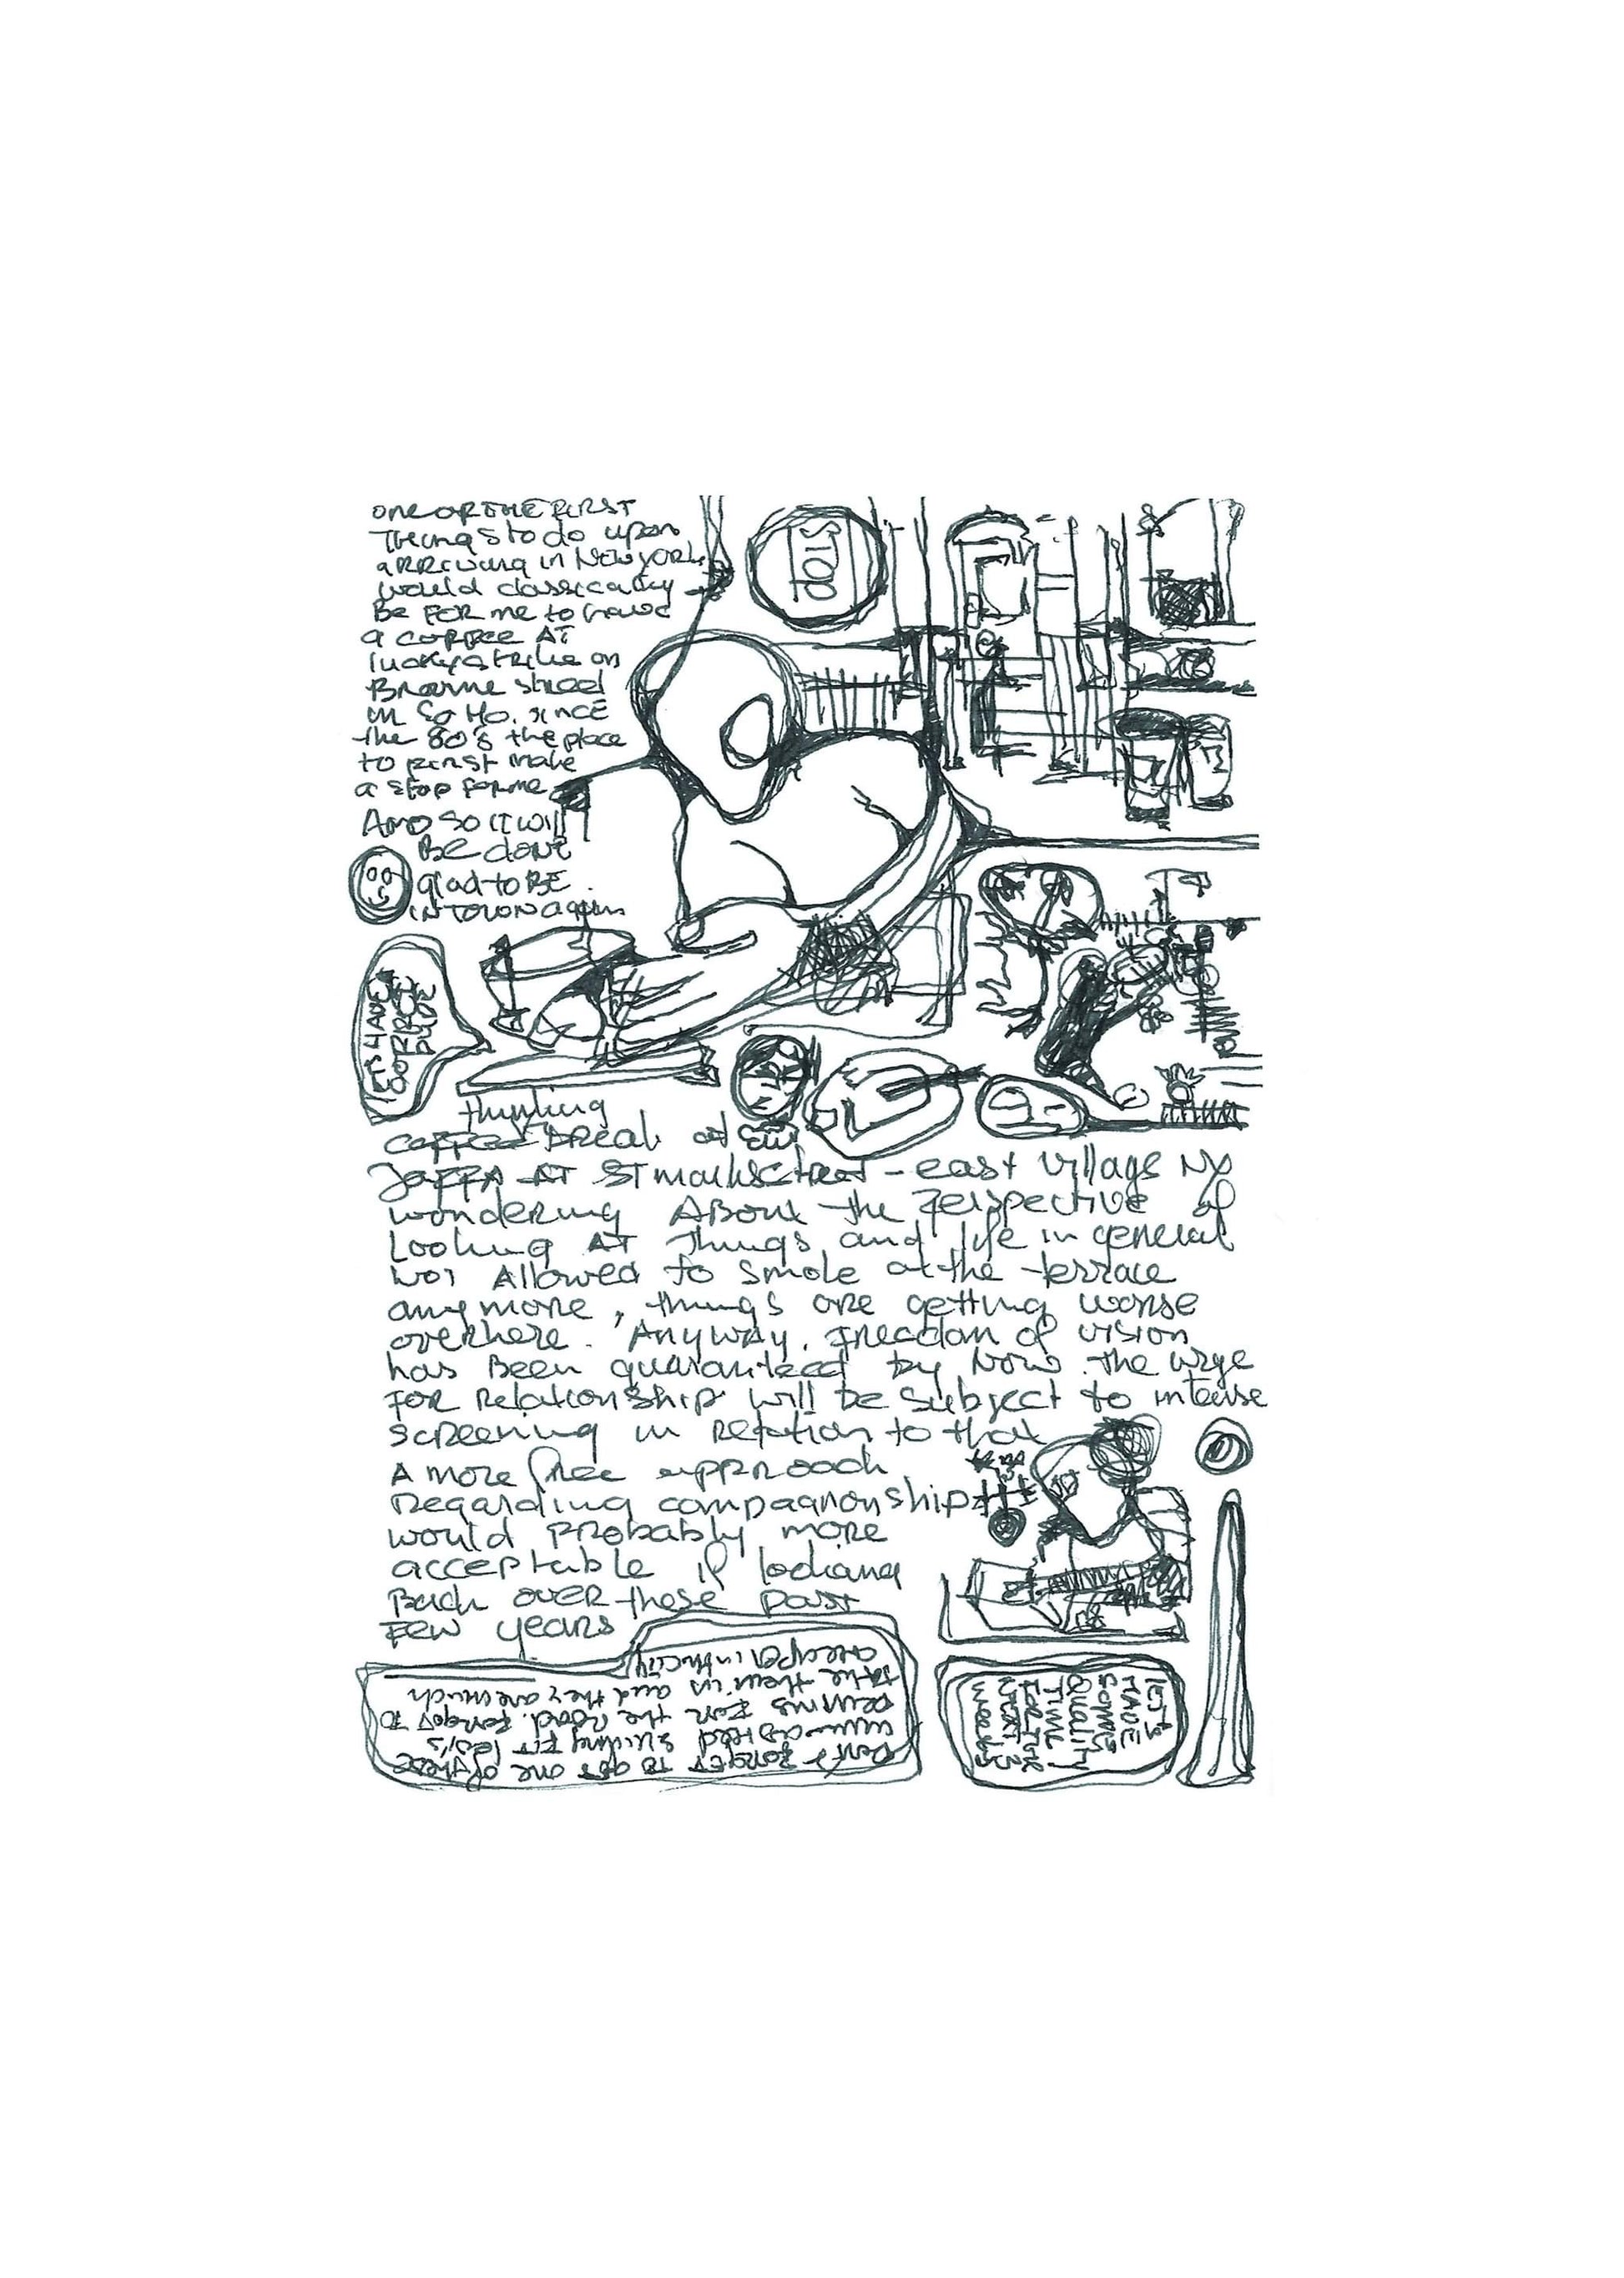 one OF THE FIRST
Things to do upon
aRRiving in New York
would classically
Be FOR me to have
a coffee AT
lucky strike on
Broome street
in SoHo. since
the 80's the place
to first make
a stop for me
And so it will
Be done
glad to BE
IN TOWN again
STOP
LETS HAVE
COFFEE
thinking
coffee break at
JAFFA AT ST marks street - east village NY
wondering About the perspective of
Looking AT Things and life in general
not Allowed to smoke at the terrace
anymore, things are getting worse
overhere. Anyway, freedom of vision
has Been guaranteed by now. the urge
FOR Relationship will be subject to intense
screening in relation to that
A more free approach
Regarding compagnonship
would probably more
acceptable if looking
Back over these past
Few years
Don't FORGET TO get one of these
sliding FIT
FOR the road. FORGOT TO
take them in and they are much
cheaper in the city
LET'S
HAVE
SOME
QUALITY
TIME
NEXT
week